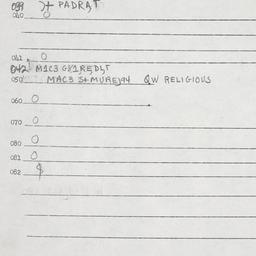 039 PADRAT
040 0
041 0
042 M1C3
050 MAC3 QW RELIGIOUS
060 0
070 0
080 0
081 0
082 $